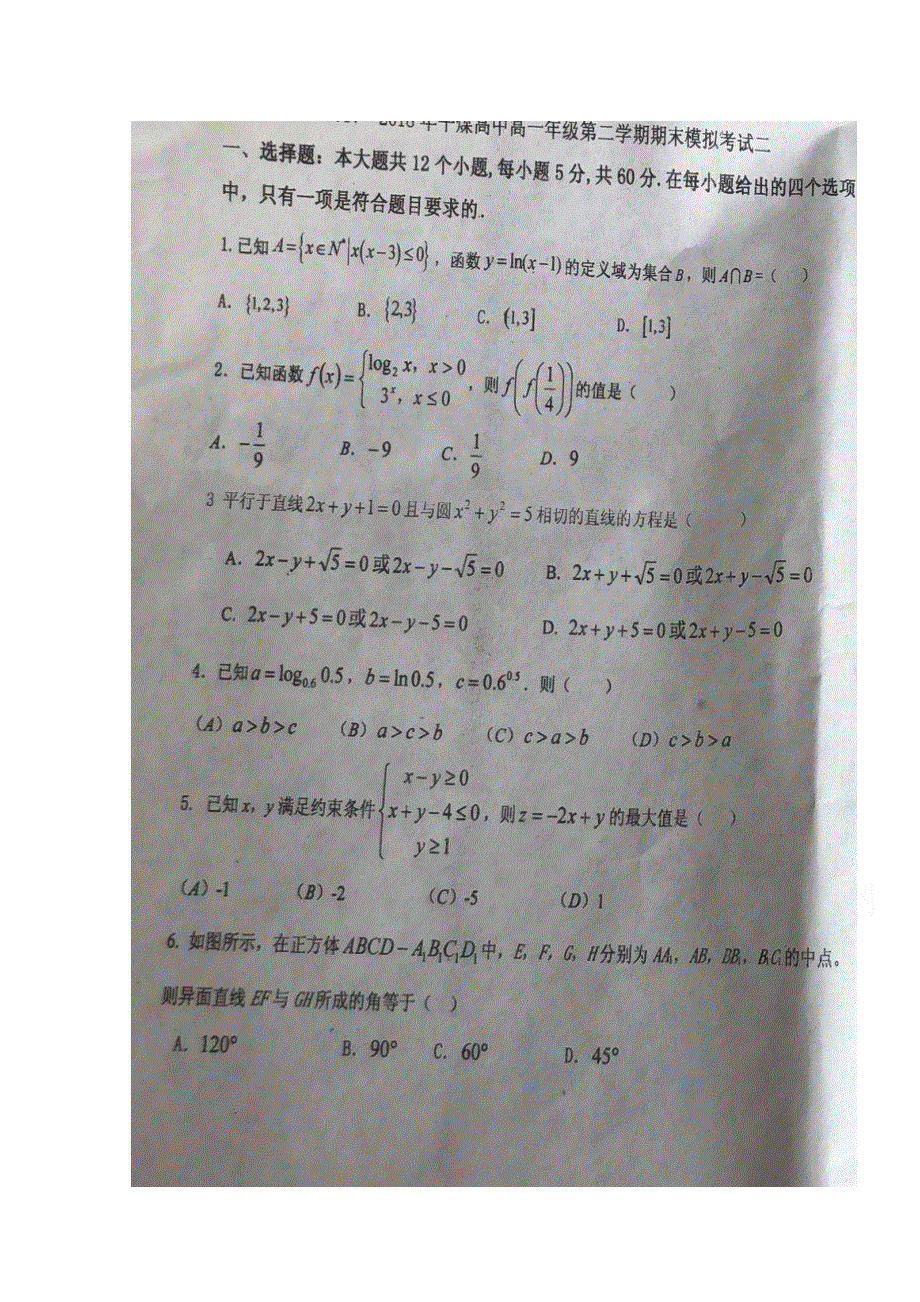 2018年平煤高中高一年级第二学期期末模拟考试二
一、选择题：本大题共12个小题,每小题5分,共60分.在每小题给出的四个选项
中，只有一项是符合题目要求的.
1.已知A={x∈N*|x(x−3)≤0}，函数y=ln(x−1)的定义域为集合B，则A∩B=（ ）
A．{1,2,3} B．{2,3} C．(1,3] D．[1,3]
2．已知函数f(x)={log₂x，x>0 3ˣ，x≤0，则f(f(1/4))的值是（ ）
A．−1/9 B．−9 C．1/9 D．9
3 平行于直线2x+y+1=0且与圆x²+y²=5相切的直线的方程是（ ）
A．2x−y+√5=0或2x−y−√5=0 B．2x+y+√5=0或2x+y−√5=0
C．2x−y+5=0或2x−y−5=0 D．2x+y+5=0或2x+y−5=0
4．已知a=log₀.₆0.5，b=ln0.5，c=0.6^0.5．则（ ）
（A）a>b>c （B）a>c>b （C）c>a>b （D）c>b>a
5. 已知x，y满足约束条件{x−y≥0 x+y−4≤0 y≥1，则z=−2x+y的最大值是（ ）
（A）-1 （B）-2 （C）-5 （D）1
6. 如图所示，在正方体ABCD−A₁B₁C₁D₁中，E，F，G，H分别为AA₁，AB，BB₁，B₁C₁的中点。
则异面直线EF与GH所成的角等于（ ）
A．120° B．90° C．60° D．45°